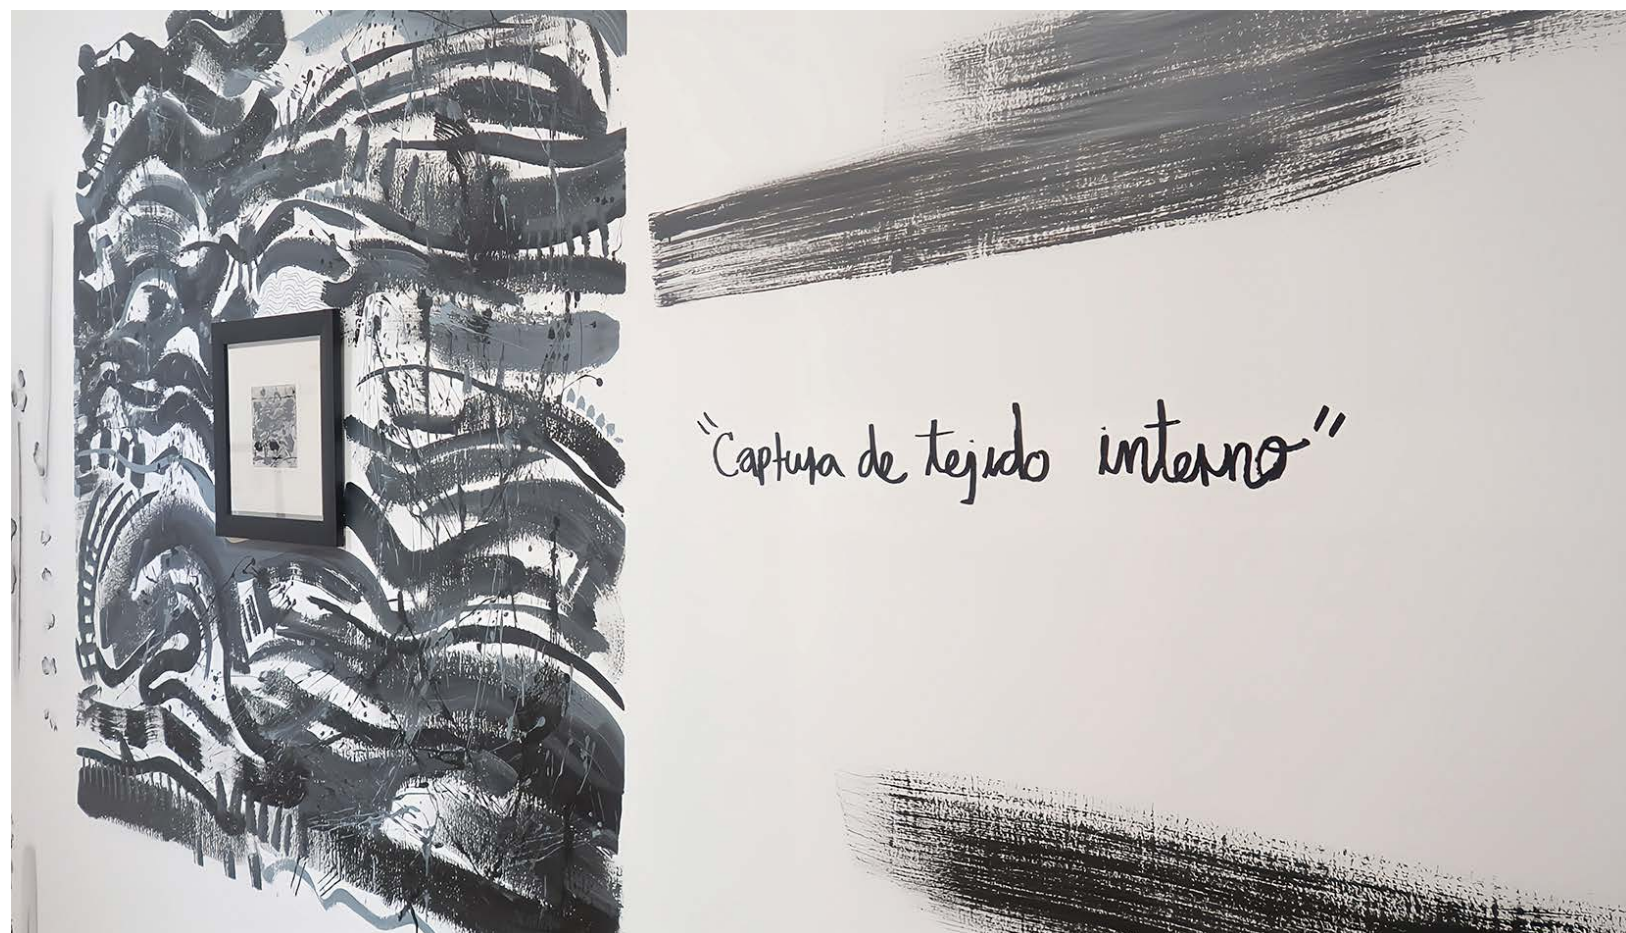 "Captura de tejido interno"